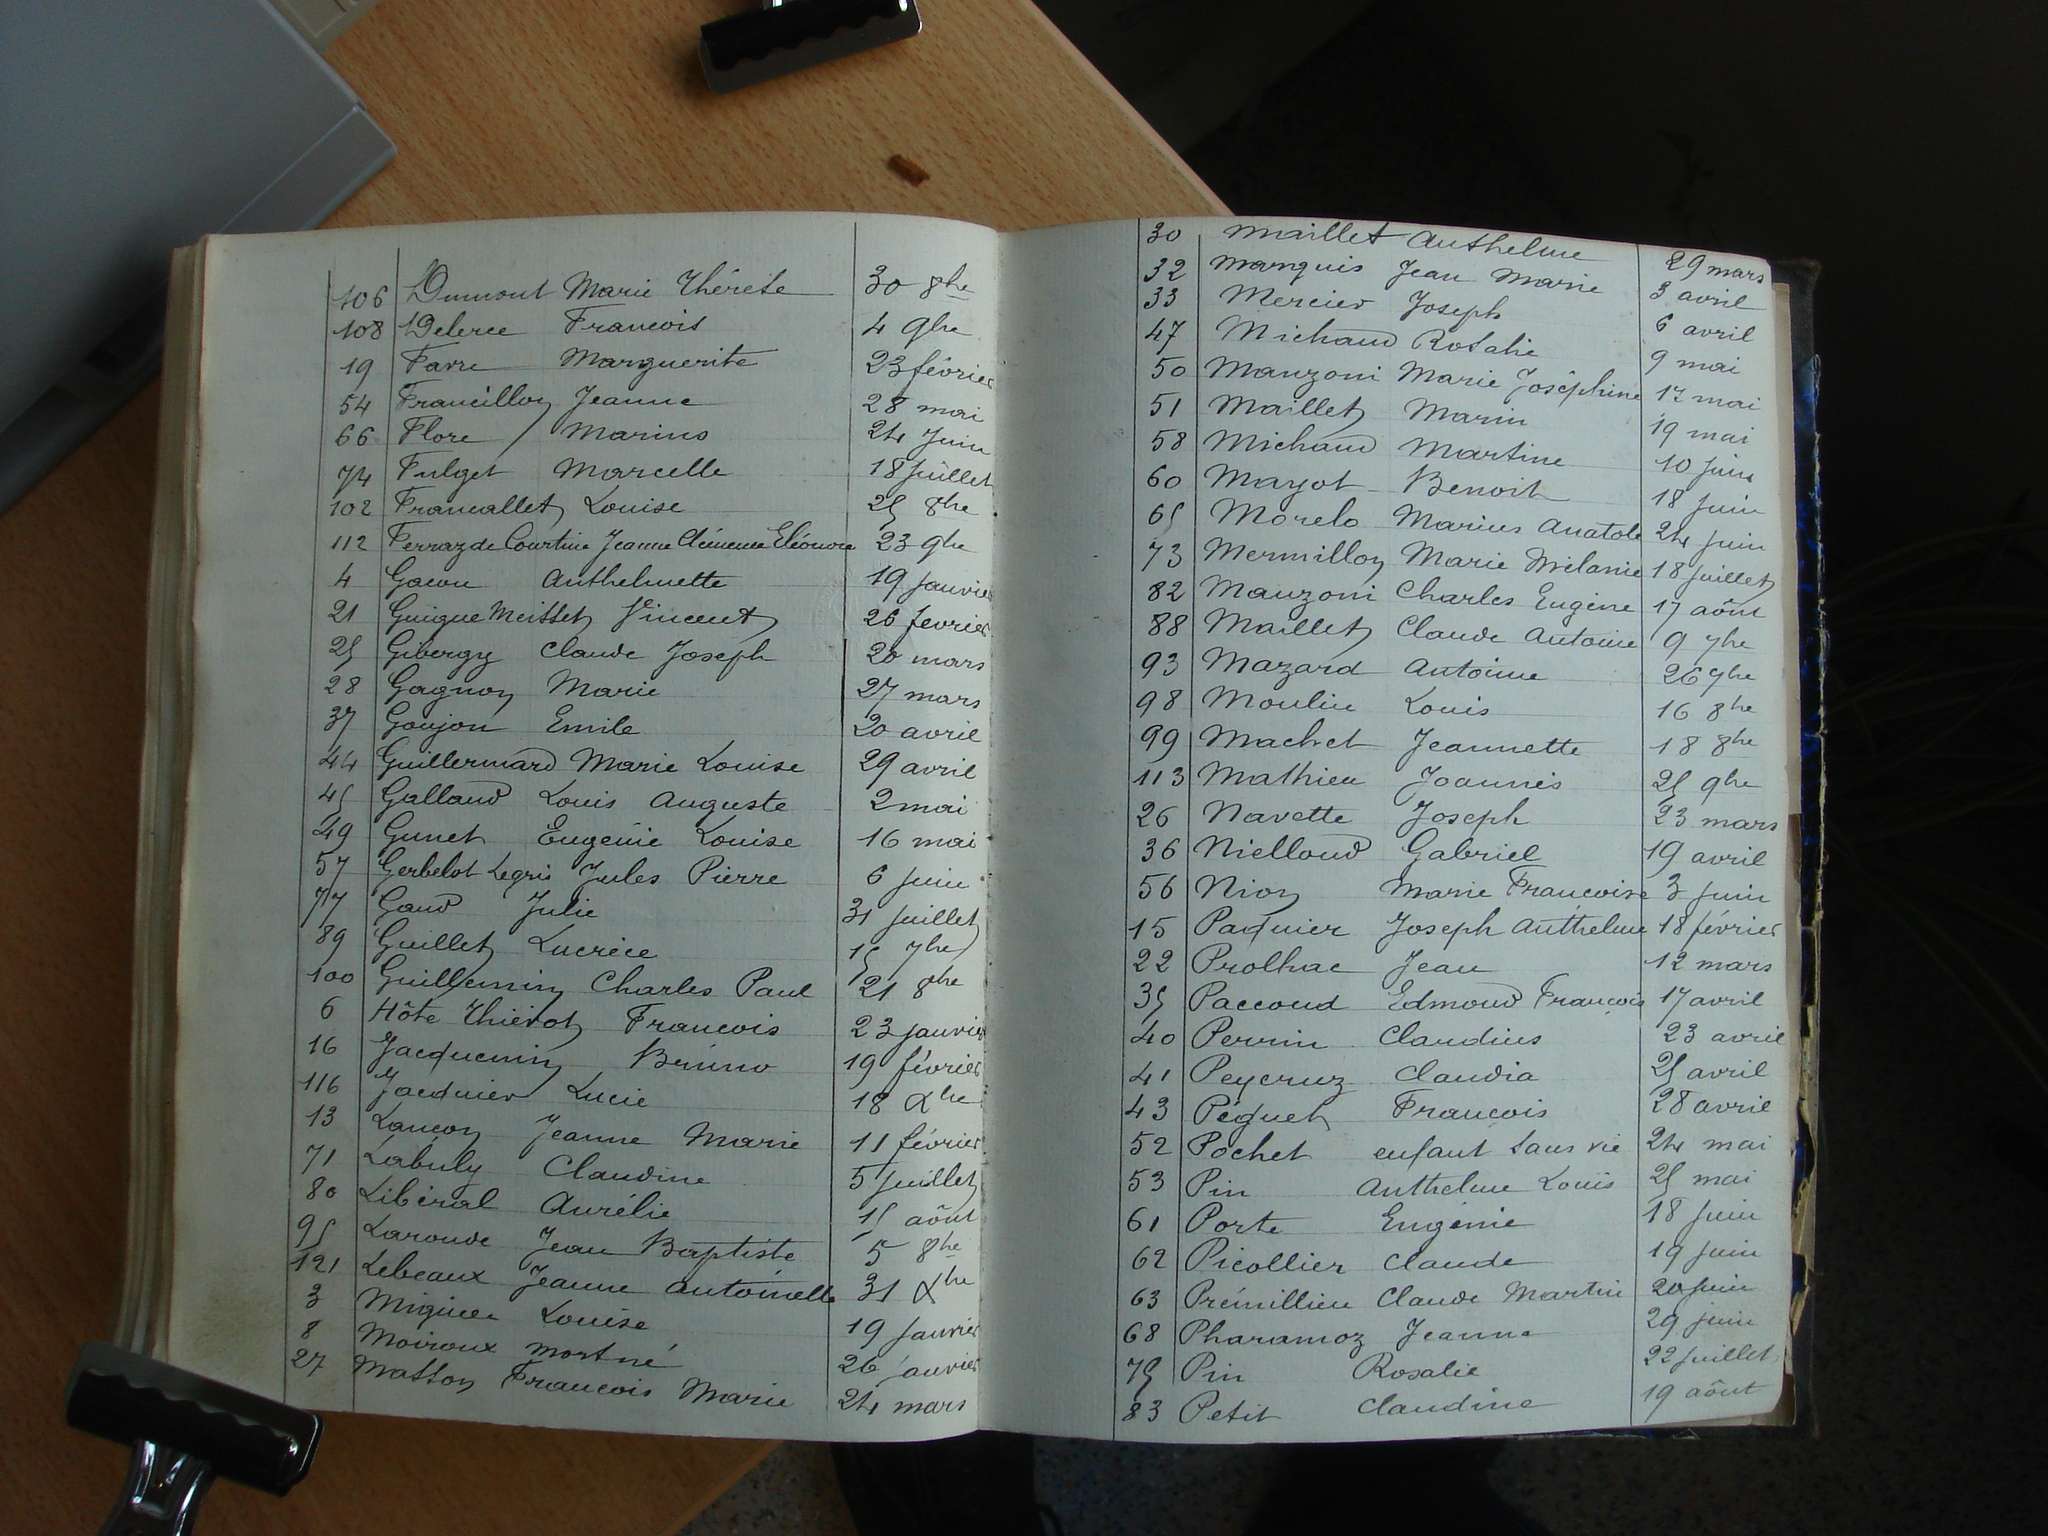 106 Dumont Marie Thérèse 30 8bre
108 Delerce François 4 9bre
19 Favre Marguerite 23 février
54 Francillon Jeanne 28 mai
66 Flore Marius 24 Juin
74 Fulget Marcelle 18 Juillet
102 Francallet Louise 25 8bre
112 Ferraz de Courtine Jeanne Clémence Eléonore 23 9bre
4 Gacon Anthelmette 19 Janvier
21 Guigue Meisset Vincent 26 février
25 Gibergy Claude Joseph 20 mars
28 Gagnon Marie 27 mars
37 Goujon Emile 20 avril
44 Guillermard Marie Louise 29 avril
45 Galland Louis Auguste 2 mai
49 Gunet Eugénie Louise 16 mai
57 Gerbelot Legris Jules Pierre 6 Juin
77 Gaud Julie 31 Juillet
89 Guillet Lucrèce 15 7bre
100 Guillemin Charles Paul 21 8bre
6 Hôte Thiévot François 23 Janvier
16 Jacquemin Bruno 19 février
116 Jacquier Lucie 18 Xbre
13 Lançon Jeanne Marie 11 février
71 Labuly Claudine 5 Juillet
80 Libéral Aurélie 15 aôut
95 Laroude Jean Baptiste 5 8bre
121 Lebeaux Jeanne Antoinette 31 Xbre
3 Louise 19 Janvier
8 Moiroux mort né 26 Janvier
27 Masson François Marie 24 mars
30 Maillet Anthelme 29 mars
32 Marquis Jean Marie 3 avril
33 Mercier Joseph 6 avril
47 Michaud Rosalie 9 mai
50 Manzoni Marie Joséphine 17 mai
51 Maillet Marin 19 mai
58 Michaud Martine 10 Juin
60 Mayot Benoit 18 Juin
65 Morelo Marius Anatole 24 Juin
73 Mermillon Marie Mélanie 18 Juillet
82 Manzoni Charles Eugène 17 aôut
88 Maillet Claude Antoine 9 7bre
93 Mazard Antoine 26 7bre
98 Moulin Louis 16 8bre
99 Machet Jeannette 18 8bre
113 Mathieu Joannès 25 9bre
26 Navette Joseph 23 mars
36 Nielloud Gabriel 19 avril
56 Nion Marie Françoise 3 Juin
15 Paquier Joseph Anthelme 18 février
22 Prolhac Jean 12 mars
35 Paccoud Edmond François 17 avril
40 Perrin Claudius 23 avril
41 Peycruz Claudia 25 avril
43 Péguet François 28 avril
52 Pochet enfant sans vie 24 mai
53 Pin Anthelme Louis 25 mai
61 Porte Eugénie 18 Juin
62 Picollier Claude 19 Juin
63 Prémillieu Claude Martin 20 Juin
68 Pharamoz Jeanne 29 juin
75 Pin Rosalie 22 Juillet
83 Petit Claudine 19 aôut